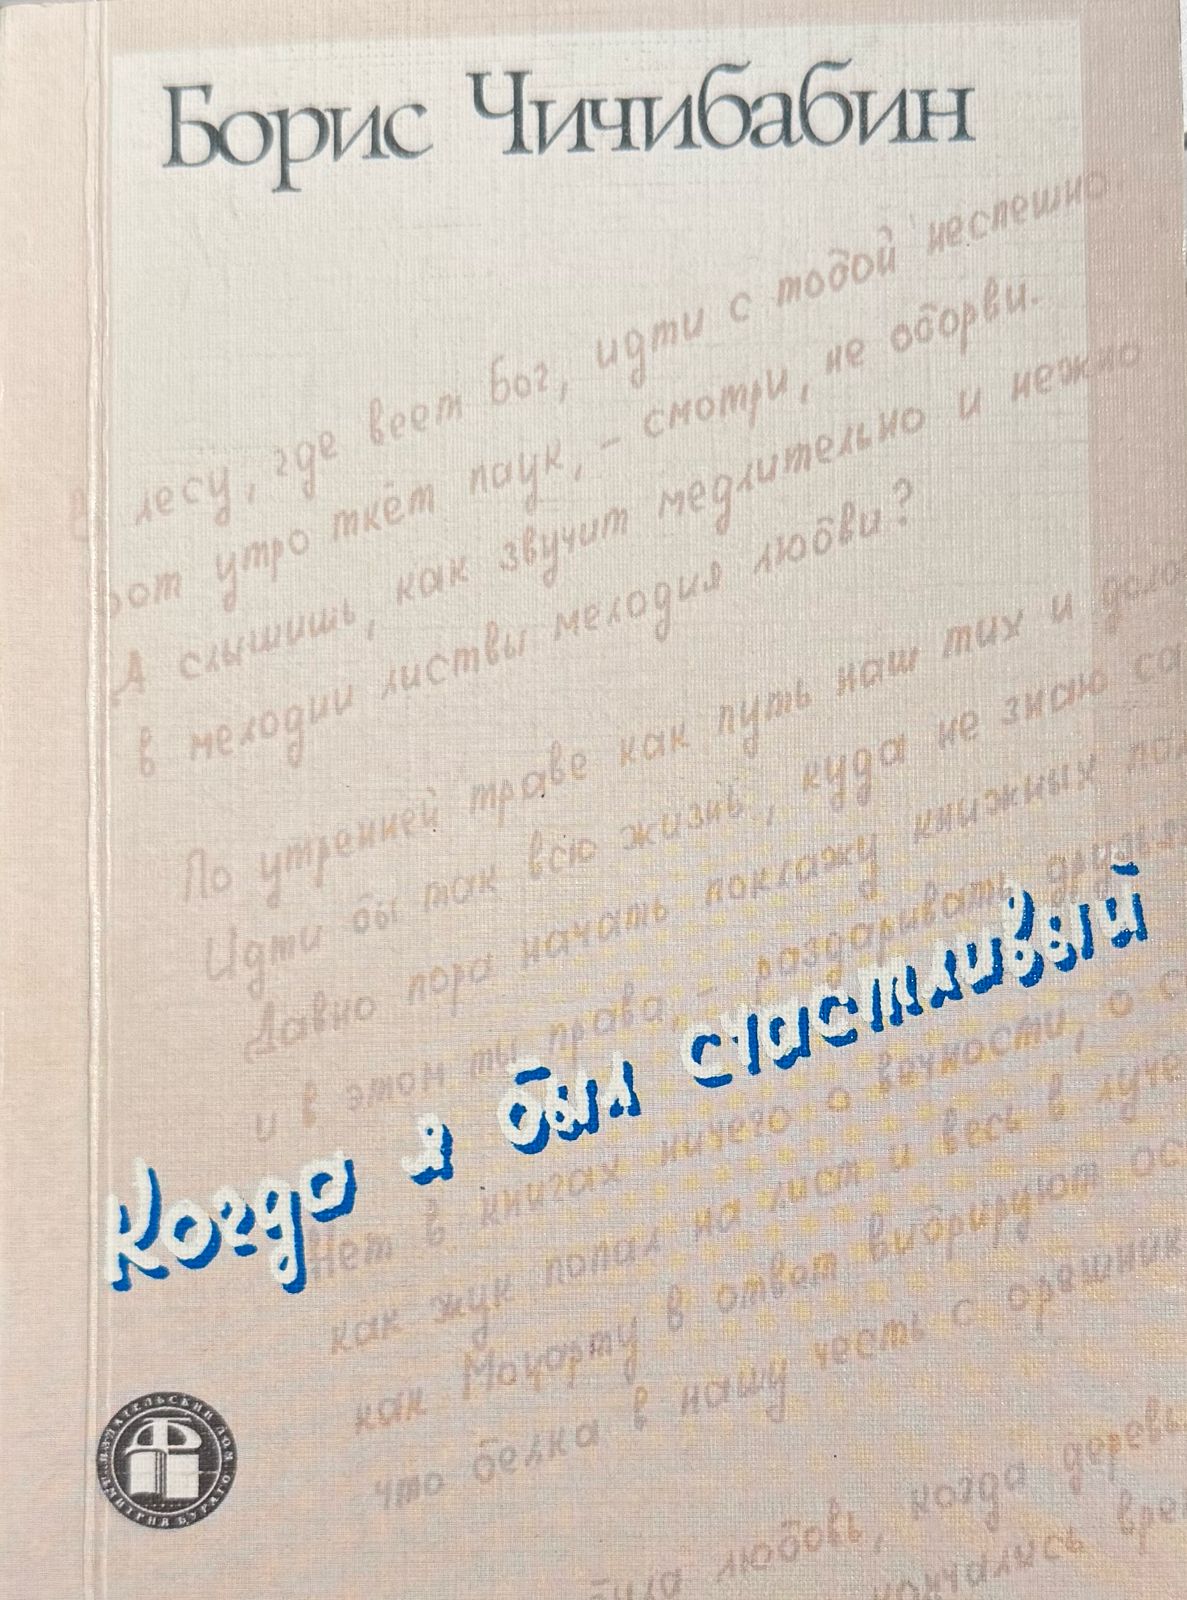 Борис Чичибабин
В лесу, где веет Бог, идти с тобой неспешно.
Вот утро ткёт паук, – смотри, не оборви.
А слышишь, как звучит медлительно и нежно
в мелодии листвы мелодия любви?
По утренней траве как путь наш тих и долог
Идти бы так всю жизнь, куда не знаю са
Давно пора начать поклажу книжных пол
и в этом ты права, – раздаривать друзьям
Когда я был счастливый
Нет в книгах ничего о вечности, о с
как жук попал на лист и весь в луче
как Моцарту в ответ вибрируют ос
что белка в нашу честь с орешник
любовь, когда деревь
кончались врем
ИЗДАТЕЛЬСКИЙ ДОМ ДМИТРИЯ БУРАГО